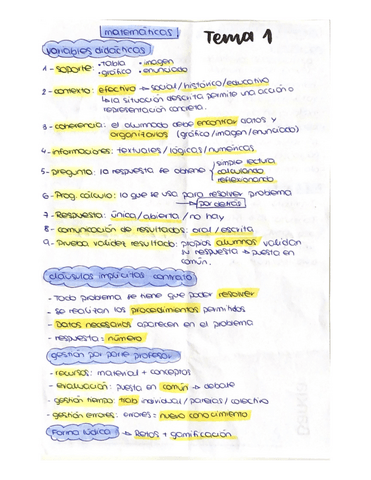 matemáticas
Tema 1
variables didácticas
1 - soporte: · tabla · imagen
· gráfico · enunciado
2 - contexto: efectivo → social/histórico/educativo
↳ la situación descrita permite una acción o
representación concreta.
3 - coherencia: el alumnado debe encontrar datos y
organizarlos (gráfico/imagen/enunciado)
4 - informaciones: textuales/lógicas/numéricas
5 - pregunta: la respuesta se obtiene simple lectura
calculando
reflexionando
6 - Prog. cálculo: lo que se usa para resolver problema
→ por detrás
7 - Respuesta: única/abierta/no hay
8 - comunicación de resultados: oral/escrita
9 - Prueba validez resultado: propios alumnos validan
su respuesta → puesta en
común.
cláusulas implícitas contrato
- Todo problema se tiene que poder resolver
- se realizan los procedimientos permitidos
- Datos necesarios aparecen en el problema
- respuesta: número
gestión por parte profesor
- recursos: material + conceptos
- evaluación: puesta en común → debate
- gestión tiempo: trab individual/parejas/colectivo
- gestión errores: errores = nuevo conocimiento
Forma lúdica → Retos + gamificación